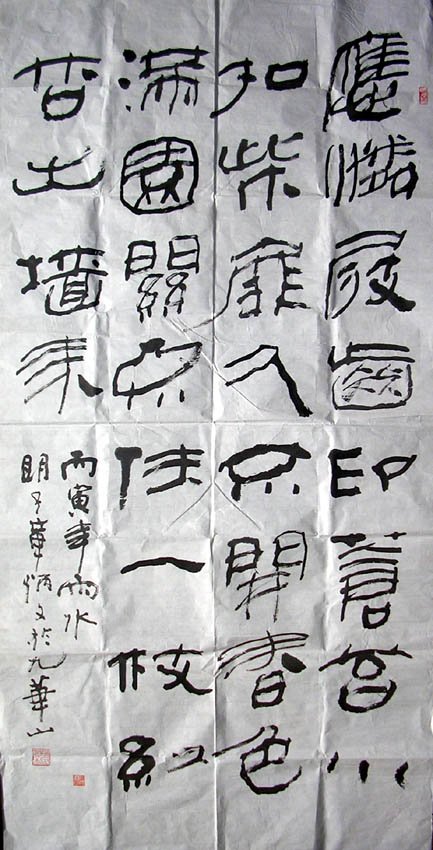 應憐屐齒印蒼苔小
扣柴扉久不開春色
滿園關不住一枝紅
杏出墻來
丙寅年雨水
明子章炳文於九華山